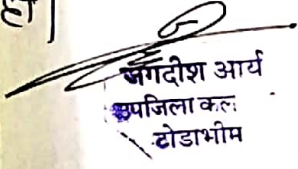 है|
जगदीश आर्य
उपजिला कल
टोडाभीम